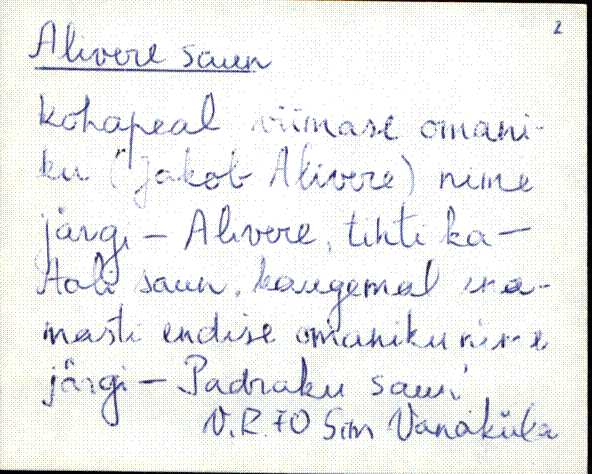 2
Alivere saun
kohapeal viimase omani-
ku (Jakob Alivere) nime
järgi – Alivere, tihti ka –
Hali saun, kaugemal ena-
masti endise omaniku nime
järgi – Padraku saun
V.R. 70 Sim Vanaküla